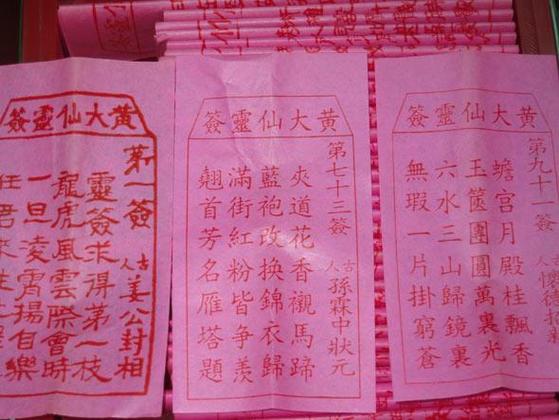 黃大仙靈簽
第一簽
古人 姜公封相
靈簽求得第一枝
龍虎風雲際會時
一旦凌霄揚自樂
任君來往
黃大仙靈簽
第七十三簽
古人 孫霖中狀元
夾道花香襯馬蹄
藍袍改換錦衣歸
滿街紅粉皆爭羨
翹首芳名雁塔題
黃大仙靈簽
第九十一簽
古人
蟾宮月殿桂飄香
玉篋團圓萬裏光
六水三山歸鏡裏
無瑕一片掛窮蒼